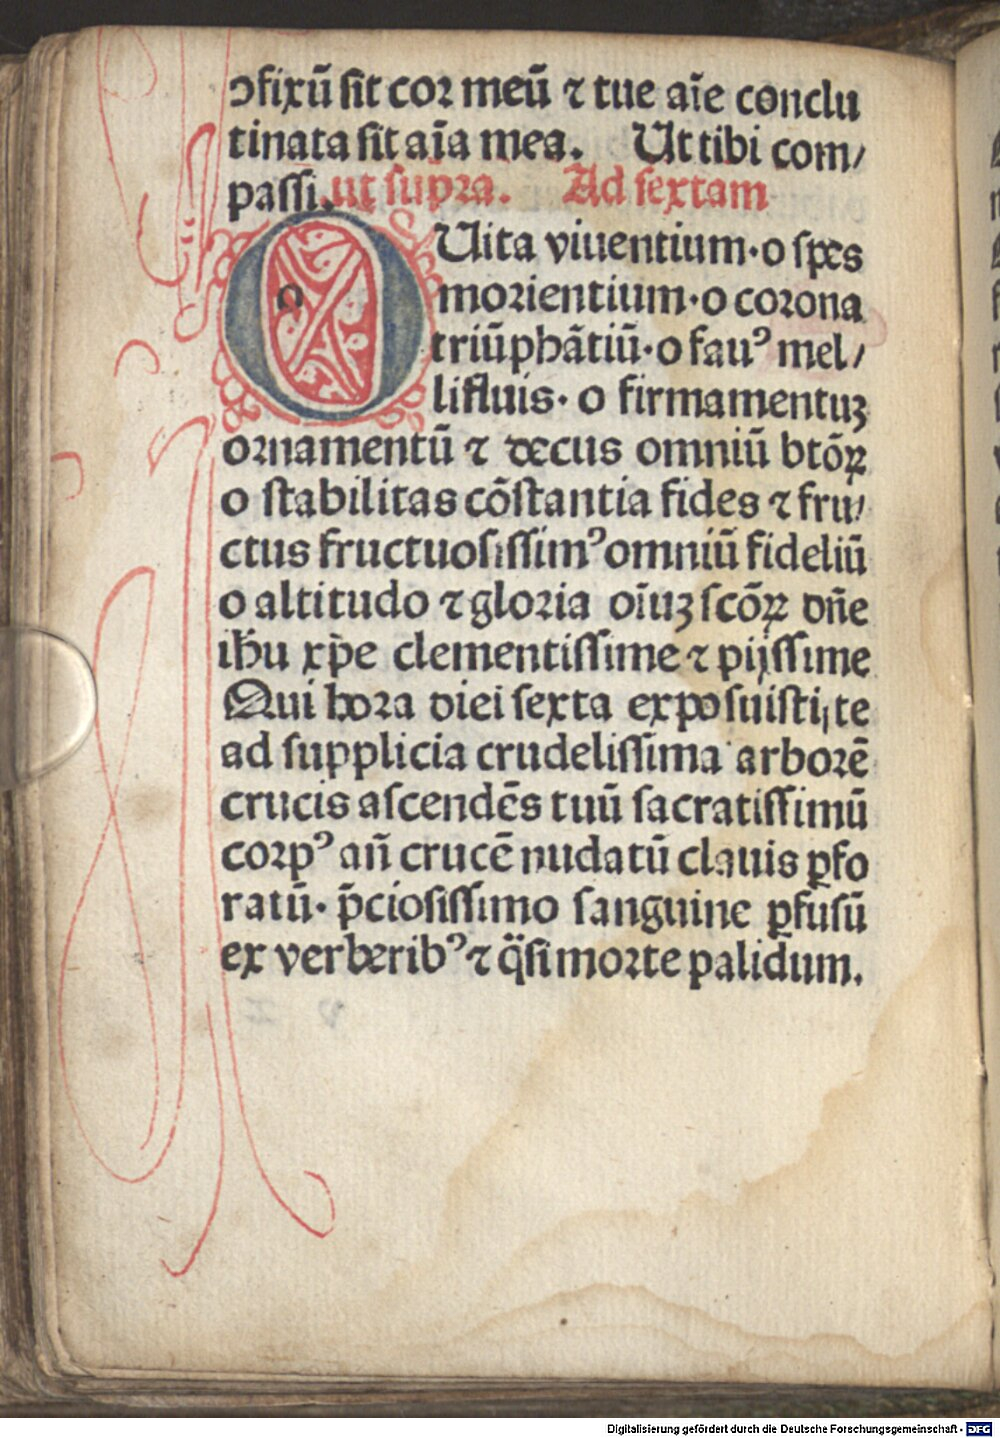 ɔfixū sit cor meū ⁊ tue aīe conclu
tinata sit aīa mea. Ut tibi com/
passi. ut supra. Ad sextam
O Uita viuentium·o spes
morientium·o corona
triūphātiū·o fauꝰ mel/
lifluis· o firmamentuꝫ
ornamentū ⁊ decus omniū btōꝝ
o stabilitas cōstantia fides ⁊ fru/
ctus fructuosissimꝰ omniū fideliū
o altitudo ⁊ gloria oīuꝫ scōꝝ dn̄e
ihu̅ xp̄e clementissime ⁊ pijssime
Qui hora diei sexta exposuisti te
ad supplicia crudelissima arborē
crucis ascendēs tuū sacratissimū
corpꝰ an̄ crucē nudatū clauis ꝑfo
ratū· p̄ciosissimo sanguine ꝑfusū
ex verberibꝰ ⁊ q̈si morte palidum.
Digitalisierung gefördert durch die Deutsche Forschungsgemeinschaft - DFG